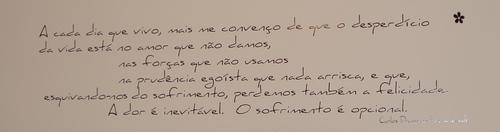 A cada dia que vivo, mais me convenço de que o desperdício
da vida está no amor que não damos,
nas forças que não usamos
na prudência egoísta que nada arrisca, e que,
esquivandonos do sofrimento, perdemos também a felicidade.
A dor é inevitável. O sofrimento é opcional.
Carlos